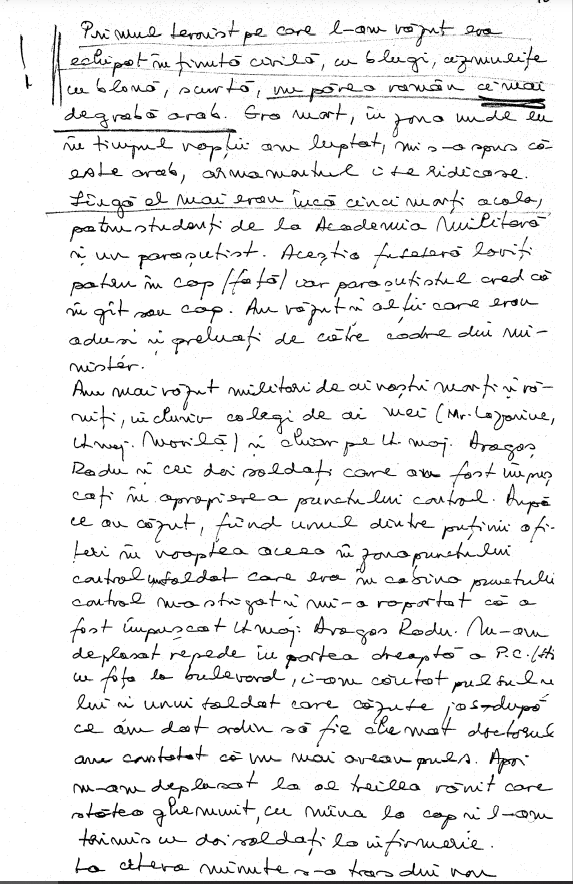 Primul terorist pe care l-am văzut era
echipat în ținută civilă, cu blugi, cizmulițe
cu blană, scurtă, nu părea român ci mai
degrabă arab. Era mort, în zona unde eu
în timpul nopții am luptat, mi s-a spus că
este arab, armamentul i se ridicase.
Lîngă el mai erau încă cinci morți acolo,
patru studenți de la Academia Militară
și un parașutist. Aceștia fuseseră loviți
patru în cap (față) iar parașutistul cred că
în gît sau cap. Am văzut și alții care erau
aduși și preluați de către cadre din mi-
nister.
Am mai văzut militari de ai noștri morți și ră-
niți, inclusiv colegi de ai mei (Mr.
Lt. maj. Movilă) și chiar pe Lt. maj. Dragoș
Radu și cei doi soldați care au fost împuș
cați în apropierea punctului control. După
ce au căzut, fiind unul dintre puținii ofi-
țeri în noaptea aceea în zona punctului
control un soldat care era în cabina punctului
control m-a strigat și mi-a raportat că a
fost împușcat Lt. maj. Dragoș Radu. M-am
deplasat repede în partea dreaptă a P.C.
cu fața la bulevard, i-am căutat pulsul
lui și unui soldat care căzuse jos după
ce am dat ordin să fie chemat doctorul
am constatat că nu mai aveau puls. Apoi
m-am deplasat la al treilea rănit care
stătea ghemuit, cu mîna la cap și l-am
trimis cu doi soldați la infirmerie.
La cîteva minute s-a tras din nou